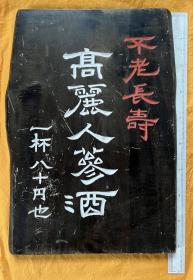 不老長寿
高麗人蔘酒
一杯八十円也